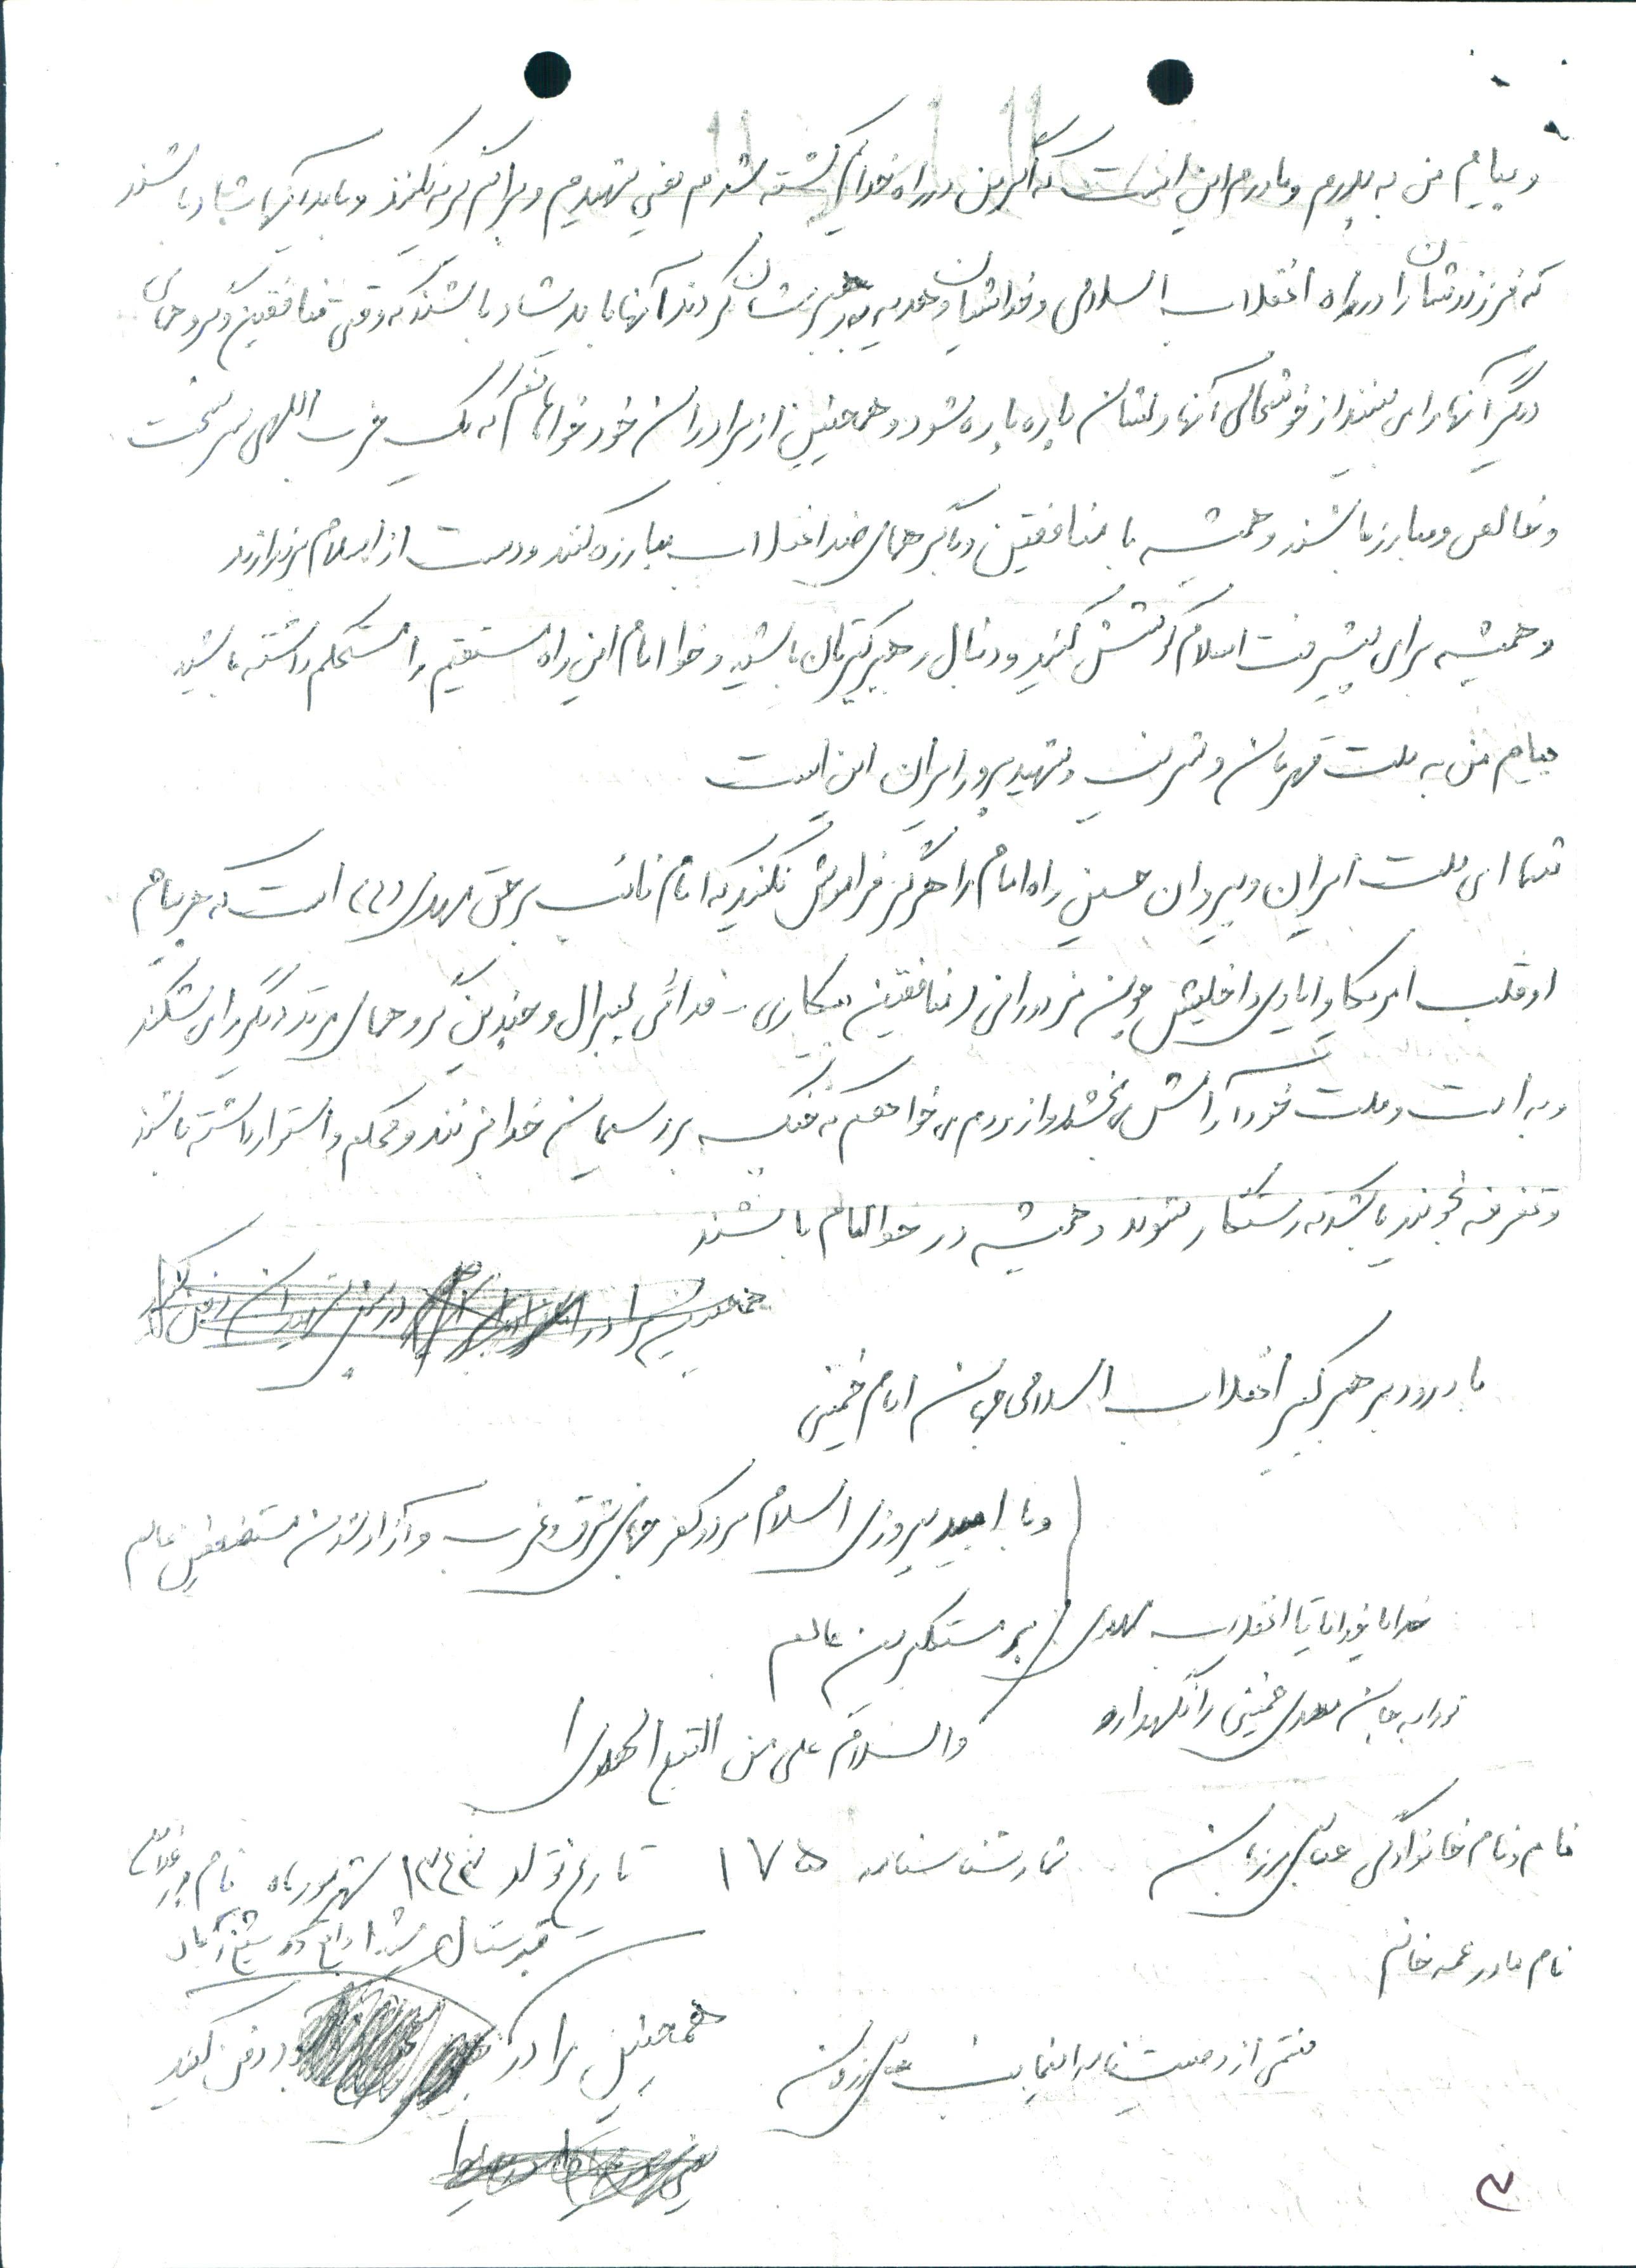 و پیام من به پدرم و مادرم این است که اگر من در راه خدا کشته شدم یعنی شهیدم و برایم گریه نکنند و باید آنها شاد باشند
که فرزندشان را در راه انقلاب اسلامی و خدا شان هدیه به رهبرشان کردند آنها باید شاد باشند که وقتی منافقین و گروههای
دیگر آنها را می بینند از خوشحالی آنها دلشان پاره پاره شود و همچنین از برادران خود خواهانم که یک حزب اللهی سرسخت
و خالص و مبارز باشند و همیشه با منافقین و دیگر های ضد انقلاب مبارزه کنند و دست از اسلام برندارند
و همیشه برای پیشرفت اسلام کوشش کنید و دنبال رهبر کبیرتان باشید و خط امام این راه مستقیم را مستحکم داشته باشید
پیام من به ملت قهرمان و شریف و شهید پرور ایران این است
شما ای ملت ایران و پیروان حسینی راه امام را هرگز فراموش نکنید که امام نائب بر حق مهدی (ع) است که هر پیام
او قلب امریکا و ایادی داخلیش چون مزدورانی (منافقین پیکاری - فدائی لیبرال و چندین گروههای مرتد دیگر را می شکند
و به امت و ملت خود آرامش می بخشد و از مردم می خواهم که چنگ بر ریسمان خدا بزنند و محکم و استوار داشته باشند
و تفرقه نجویند باشد که رستگار شوند و همیشه در خط امام باشند
همچنین مرا در
با درود بر رهبر کبیر انقلاب اسلامی جهان امام خمینی
و با امید پیروزی اسلام بر دو کفر جهانی شرق و غرب و آزاد شدن مستضعفین عالم
بر مستکبرین عالم
خدایا خدایا تا انقلاب مهدی
تو را به جان مهدی خمینی را نگهدار
والسلام علی من التبع الهدی
نام و نام خانوادگی مرزبان شماره شناسنامه ۱۷۵ تاریخ تولد ۱۳۴۳ شهریورماه نام پدر
نام مادر عمه خانم
قبرستان شهدا واقع در شیخ آباد
همچنین مرا در دفن کنید
قسمتی از وصیت نامه اینجانب مرزبان
۳